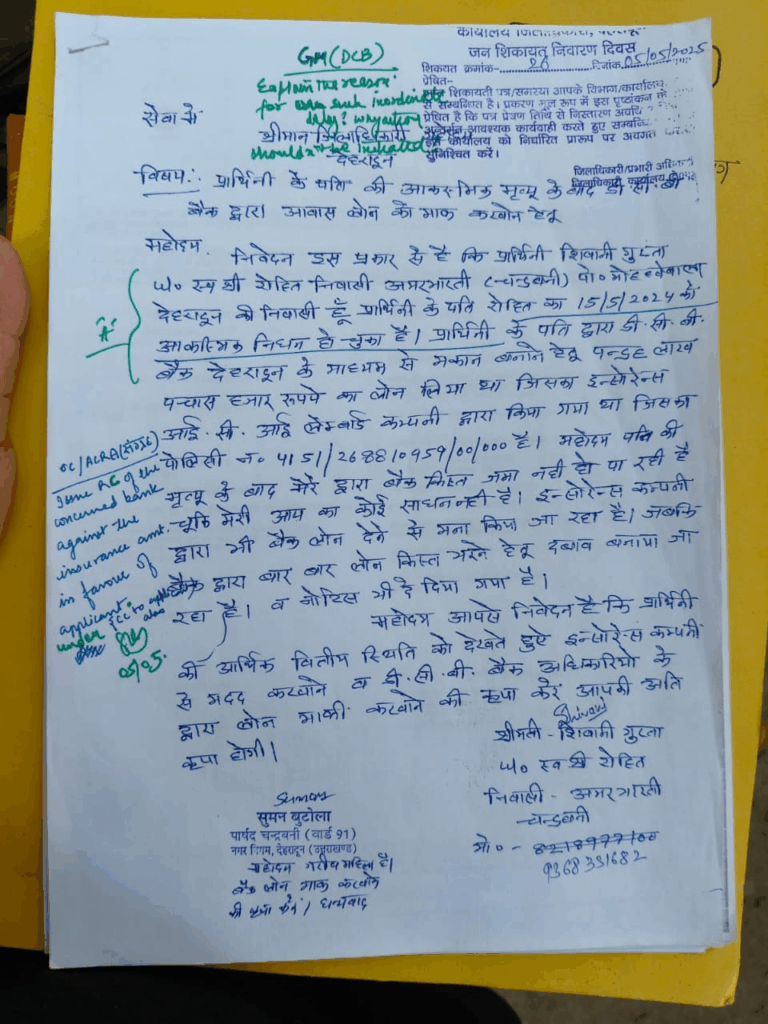 GM (DCB)
Explain the reason
for such inordinate
delay? why action
shouldn't be initiated
कार्यालय जिलाधिकारी,
जन शिकायत निवारण दिवस
शिकायत क्रमांक- 26 दिनांक 05/05/2025
प्रेषित-
शिकायती पत्र/समस्या आपके विभाग/कार्यालय
से सम्बन्धित है। प्रकरण मूल रूप में इस पृष्ठांकन के
प्रेषित है कि पत्र प्रेषण तिथि से निस्तारण अवधि
आवश्यक कार्यवाही करते हुए सम्बन्धि
इस कार्यालय को निर्धारित प्रारूप पर अवगत
सुनिश्चित करें।
जिलाधिकारी/प्रभारी अधिका
जिलाधिकारी कार्यालय
सेवा में
श्रीमान जिलाधिकारी
देहरादून
विषय:- प्रार्थिनी के पति की आकस्मिक मृत्यू के बाद डी सी बी
बैंक द्वारा आवास लोन को माफ करवाने हेतू
महोदय, निवेदन इस प्रकार से है कि प्रार्थिनी शिवानी गुप्ता
w/o स्व श्री रोहित निवासी अमरभारती (चन्द्रबनी) पो०
देहरादून की निवासी हूँ प्रार्थिनी के पति रोहित का 15/5/2024 को
आकस्मिक निधन हो चुका है। प्रार्थिनी के पति द्वारा डी.सी.बी.
बैंक देहरादून के माध्यम से मकान बनाने हेतू पन्द्रह लाख
पच्चास हजार रूपये का लोन लिया था जिसका इन्सोरेन्स
आई.सी.आई लेम्बार्ड कम्पनी द्वारा किया गया था जिसका
पोलिसी न० 4151/268810959/00/000 है। महोदय पति की
मृत्यू के बाद मेरे द्वारा बैंक किस्त जमा नही हो पा रही है
चूकि मेरी आय का कोई साधन नही है। इन्सोरेन्स कम्पनी
द्वारा भी बैंक लोन देने से मना किया जा रहा है। जबकि
बैंक द्वारा बार बार लोन किस्त भरने हेतू दबाव बनाया जा
रहा है। व नोटिस भी दे दिया गया है।
महोदय आपसे निवेदन है कि प्रार्थिनी
की आर्थिक वित्तीय स्थिति को देखते हुए इन्सोरेन्स कम्पनी
से मदद करवाने व डी.सी.बी. बैंक अधिकारियो के
द्वारा लोन माफी करवाने की कृपा करें आपकी अति
कृपा होगी।
"A"
OC/ACRA(संग्रह)
Issue RC of the
concerned bank
against the
insurance amt.
in favour of
applicant.
under
05/05.
Shivani
श्रीमती - शिवानी गुप्ता
w/o स्व श्री रोहित
निवासी - अमरभारती
चन्द्रबनी
मो० - 8218977100
9368331682
Suman
सुमन बुटोला
पार्षद चन्द्रबनी (वार्ड 91)
नगर निगम, देहरादून (उत्तराखण्ड)
महोदय गरीब महिला है।
बैंक लोन माफ करवाने
की कृपा करें। धन्यवाद